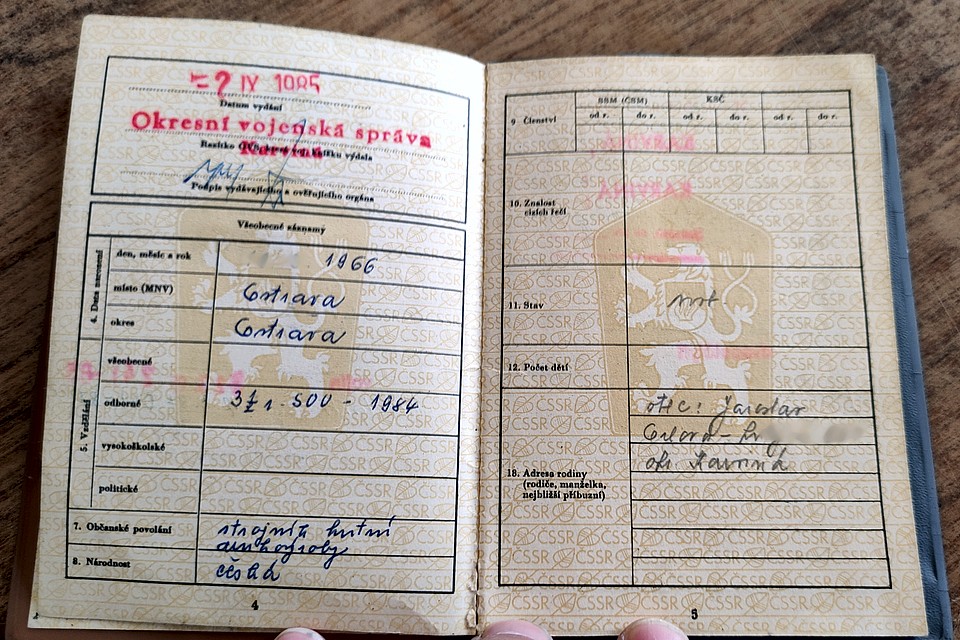 IV 1985
Datum vydání
Okresní vojenská správa
Karviná
Podpis vydávajícího a ověřujícího orgánu
Všeobecné záznamy
4. Data narození
den, měsíc a rok 1966
místo (MNV) Ostrava
okres Ostrava
5. Vzdělání
všeobecné
odborné SOU - 1984
vysokoškolské
politické
7. Občanské povolání strojník hutní
druhovýroby
8. Národnost česká
4
9 Členství
SSM (ČSM) KSČ
od r. do r. od r. do r. od r. do r.
10. Znalost
cizích řečí
11. Stav svob.
12. Počet dětí
13. Adresa rodiny
(rodiče, manželka,
nejbližší příbuzní)
otec: Jaroslav
Orlová-
ok. Karviná
5